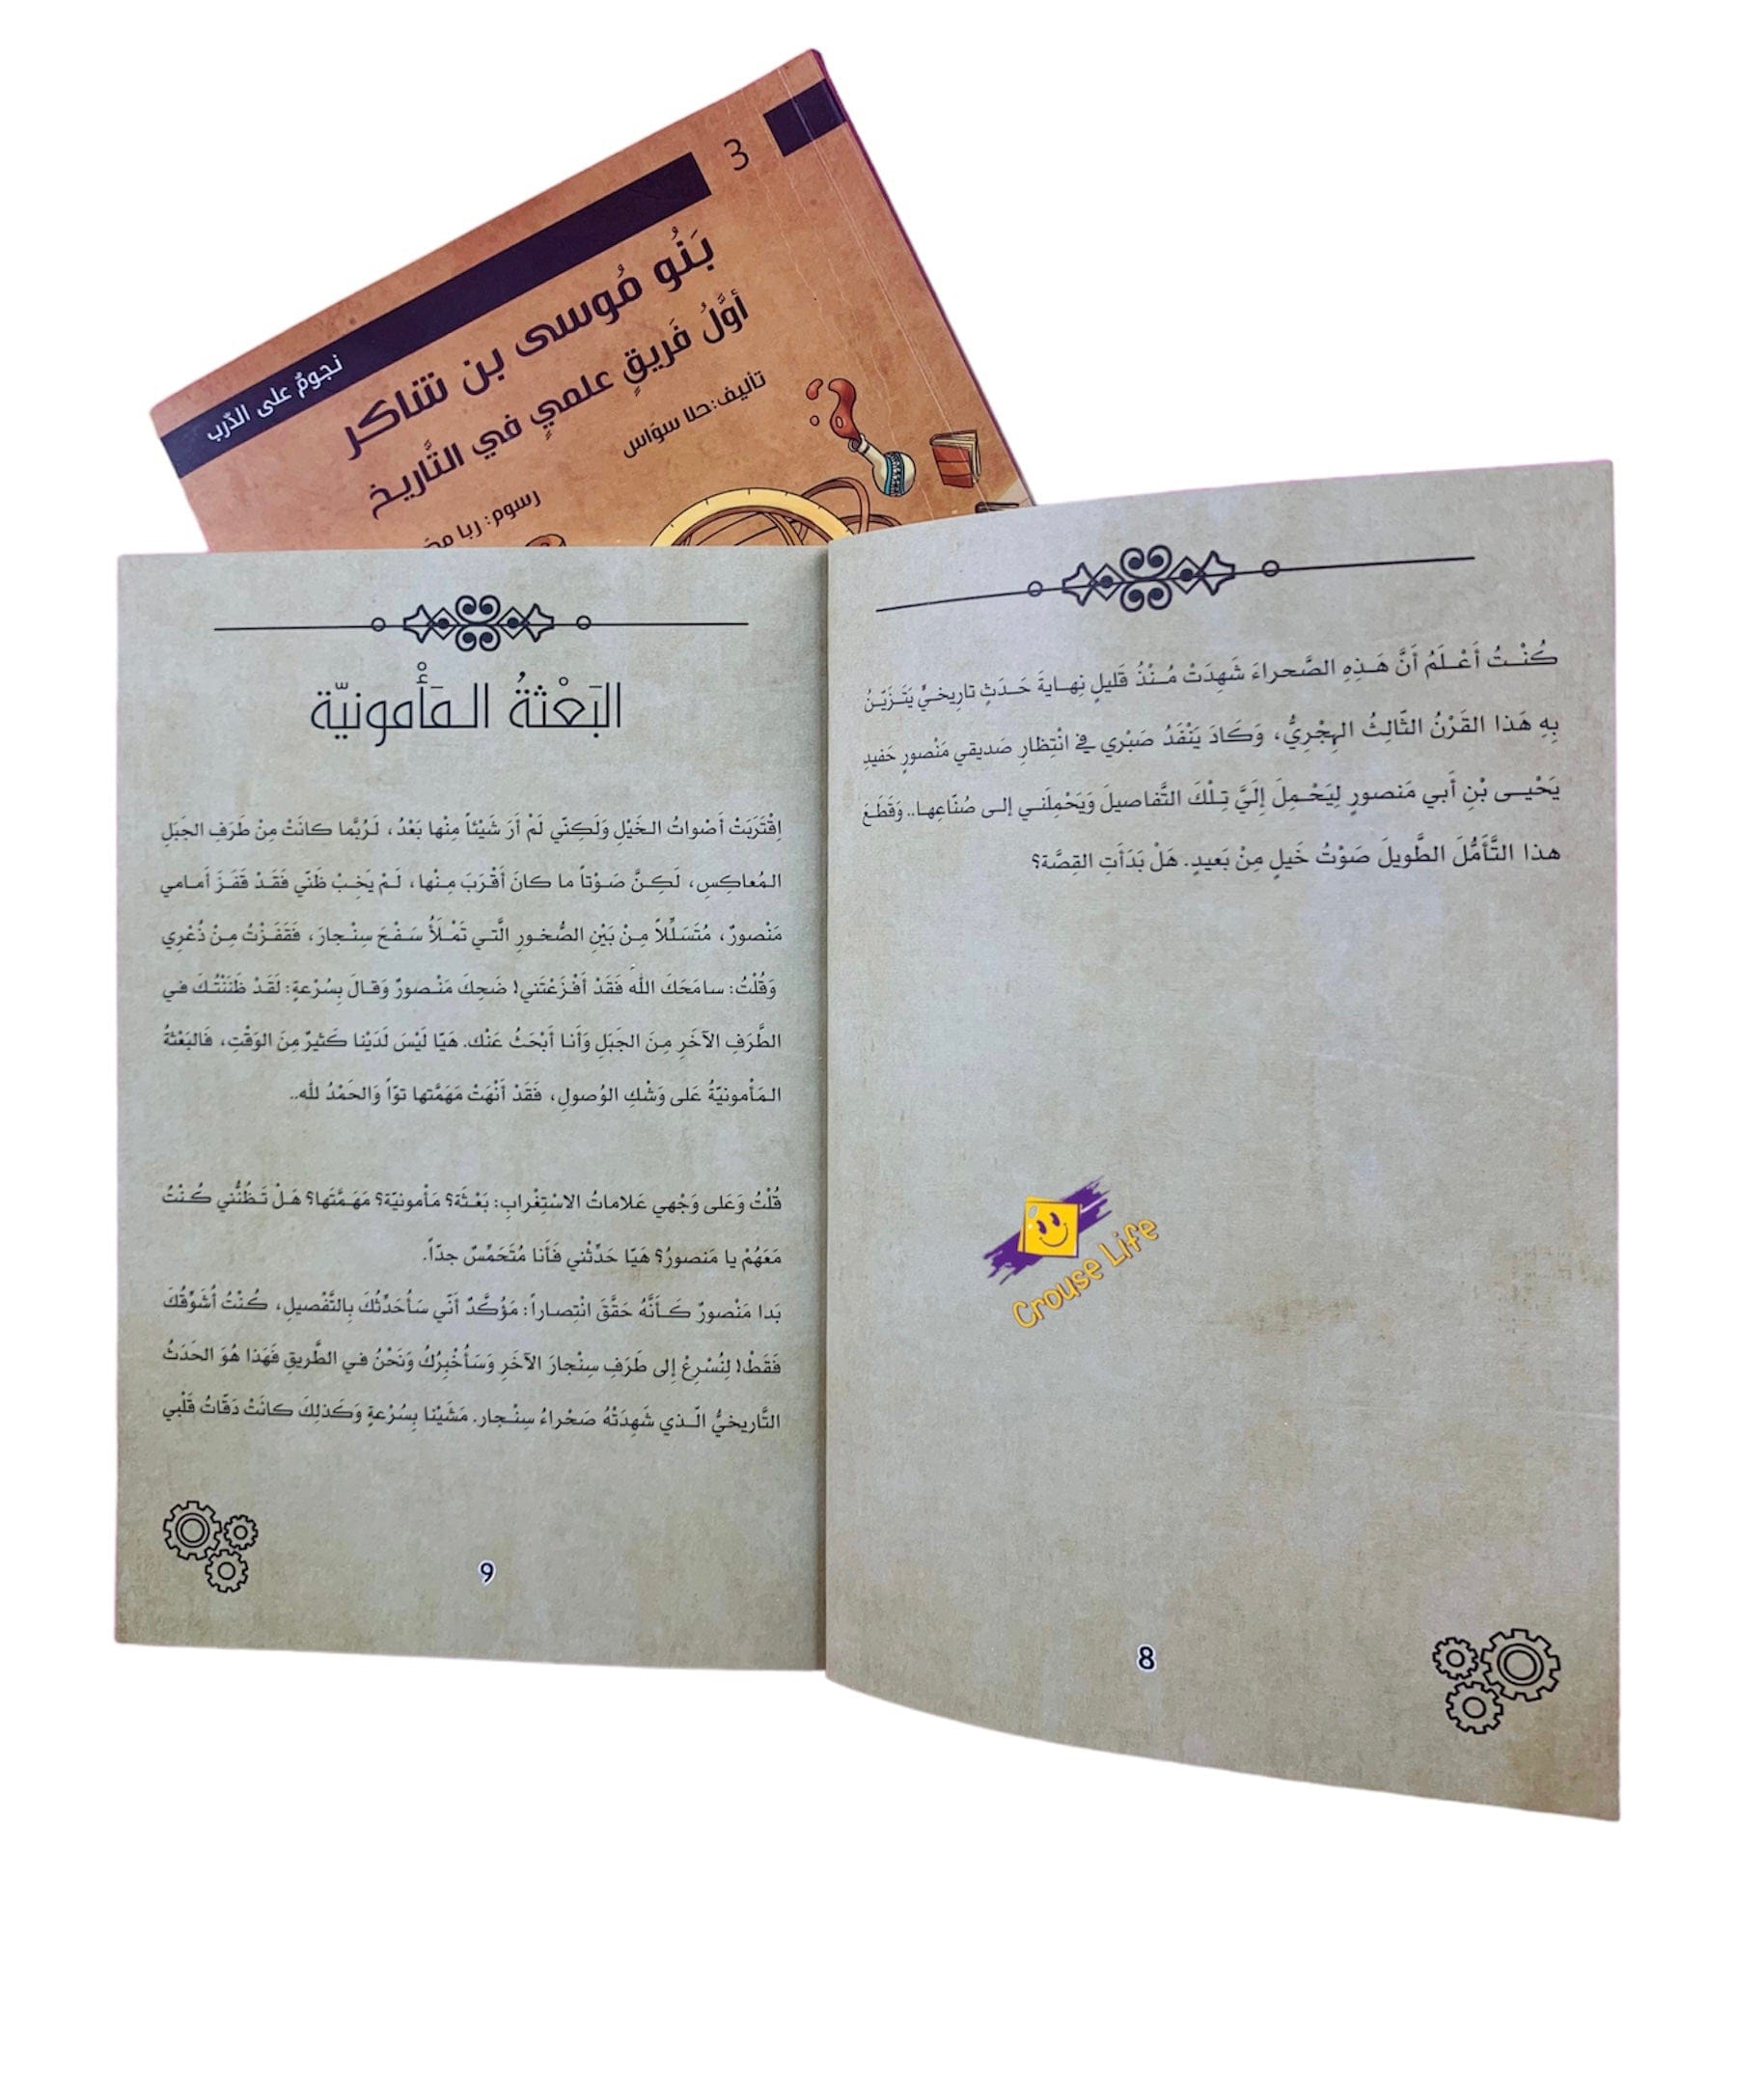 3
نجومٌ على الدّرب
بَنُو مُوسى بن شاكر
أوَّلُ فَريقٍ علميٍ في التَّاريخ
تأليف: حلا سوّاس
رسوم: ربا
كُنْتُ أَعْلَمُ أَنَّ هَذِهِ الصَّحراءَ شَهِدَتْ مُنْذُ قَليلٍ نِهايةَ حَدَثٍ تاريخيٍّ يَتَزَيّنُ
بِهِ هَذا القَرْنُ الثّالِثُ الهِجْرِيُّ، وَكَادَ يَنْفَدُ صَبْري في انْتِظارِ صَديقي مَنْصورٍ حَفيدِ
يَحْيى بْنِ أَبي مَنصورٍ لِيَحْمِلَ إِلَيَّ تِلْكَ التَّفاصيلَ وَيَحْمِلَني إلى صُنّاعِها.. وَقَطَعَ
هذا التَّأَمُّلَ الطَّويلَ صَوْتُ خَيلٍ مِنْ بَعيدٍ. هَلْ بَدَأَتِ القِصَّة؟
Crouse Life
8
البَعْثةُ المَأْمونيّة
اِقْتَرَبَتْ أَصْواتُ الخَيْلِ وَلَكِنّي لَمْ أَرَ شَيْئاً مِنْها بَعْدُ، لَرُبَّما كانَتْ مِنْ طَرَفِ الجَبَلِ
المُعاكِسِ، لَكِنَّ صَوْتاً ما كانَ أَقْرَبَ مِنْها، لَمْ يَخِبْ ظَنّي فَقَدْ قَفَزَ أَمامي
مَنْصورٌ، مُتَسَلِّلاً مِنْ بَيْنِ الصُّخورِ الَّتي تَمْلَأُ سَفْحَ سِنْجارَ، فَقَفَزْتُ مِنْ ذُعْرِي
وَقُلْتُ: سامَحَكَ اللهُ فَقَدْ أَفْزَعْتَني! ضَحِكَ مَنْصورٌ وَقالَ بِسُرْعةٍ: لَقَدْ ظَنَنْتُكَ في
الطَّرَفِ الآخَرِ مِنَ الجَبَلِ وَأَنا أَبْحَثُ عَنْك. هَيّا لَيْسَ لَدَيْنا كَثيرٌ مِنَ الوَقْتِ، فَالبَعْثةُ
المَأْمونيّةُ عَلى وَشْكِ الوُصولِ، فَقَدْ أَنْهَتْ مَهَمَّتها توّاً وَالحَمْدُ لله..
قُلْتُ وَعَلى وَجْهي عَلاماتُ الاسْتِغْرابِ: بَعْثَة؟ مَأْمونيّة؟ مَهَمَّتَها؟ هَلْ تَظُنُّني كُنْتُ
مَعَهُمْ يا مَنصورُ؟ هَيّا حَدِّثْني فَأَنا مُتَحَمِّسٌ جدّاً.
بَدا مَنْصورٌ كَأَنَّهُ حَقَّقَ انْتِصاراً: مَؤكَّدٌ أَنّي سَأُحَدِّثُكَ بِالتَّفْصيلِ، كُنْتُ أُشَوِّقُكَ
فَقَطْ! لِنُسْرِعْ إِلى طَرَفِ سِنْجارَ الآخَرِ وَسَأُخْبِرُكَ وَنَحْنُ في الطَّريقِ فَهَذا هُوَ الحَدَثُ
التَّاريخيُّ الّذي شَهِدَتْهُ صَحْراءُ سِنْجار. مَشَيْنا بِسُرْعةٍ وَكَذلِكَ كانَتْ دَقّاتُ قَلْبي
9